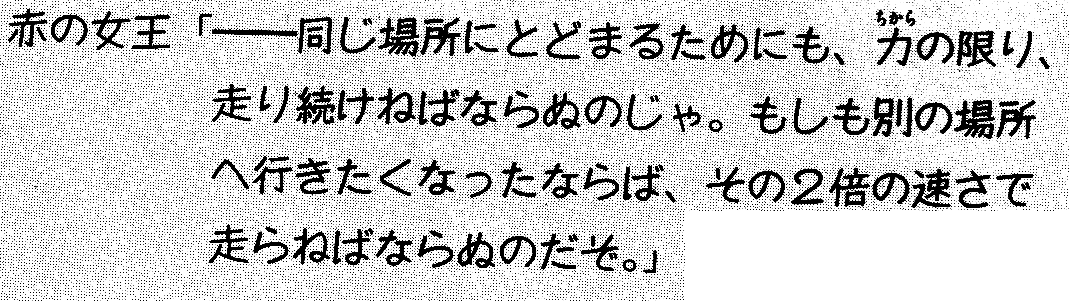 赤の女王「――同じ場所にとどまるためにも、力の限り、
走り続けねばならぬのじゃ。もしも別の場所
へ行きたくなったならば、その2倍の速さで
走らねばならぬのだぞ。」
ちから